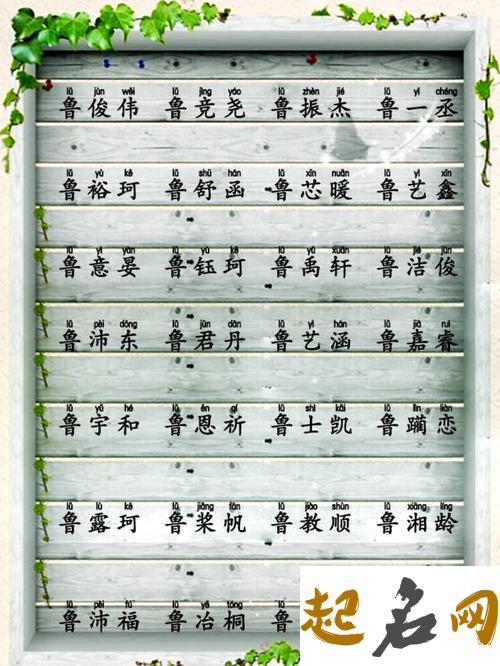 lǔ jùn wěi lǔ jìng yáo lǔ zhèn jié lǔ yī chéng
鲁俊伟 鲁竞尧 鲁振杰 鲁一丞
lǔ yù kē lǔ shū hán lǔ xīn nuǎn lǔ yì xīn
鲁裕珂 鲁舒函 鲁芯暖 鲁艺鑫
lǔ yì yàn lǔ yù kē lǔ yǔ xuān lǔ jié jùn
鲁意晏 鲁钰珂 鲁禹轩 鲁洁俊
lǔ pèi dōng lǔ jūn dān lǔ yì hán lǔ jiā ruì
鲁沛东 鲁君丹 鲁艺涵 鲁嘉睿
lǔ yǔ hé lǔ ēn qí lǔ shì kǎi lǔ lìn liàn
鲁宇和 鲁恩祈 鲁士凯 鲁躏恋
lǔ lù kē lǔ jiǎng fān lǔ jiào shùn lǔ xiāng líng
鲁露珂 鲁桨帆 鲁教顺 鲁湘龄
lǔ pèi fú lǔ yě tóng
鲁沛福 鲁冶桐
起名网